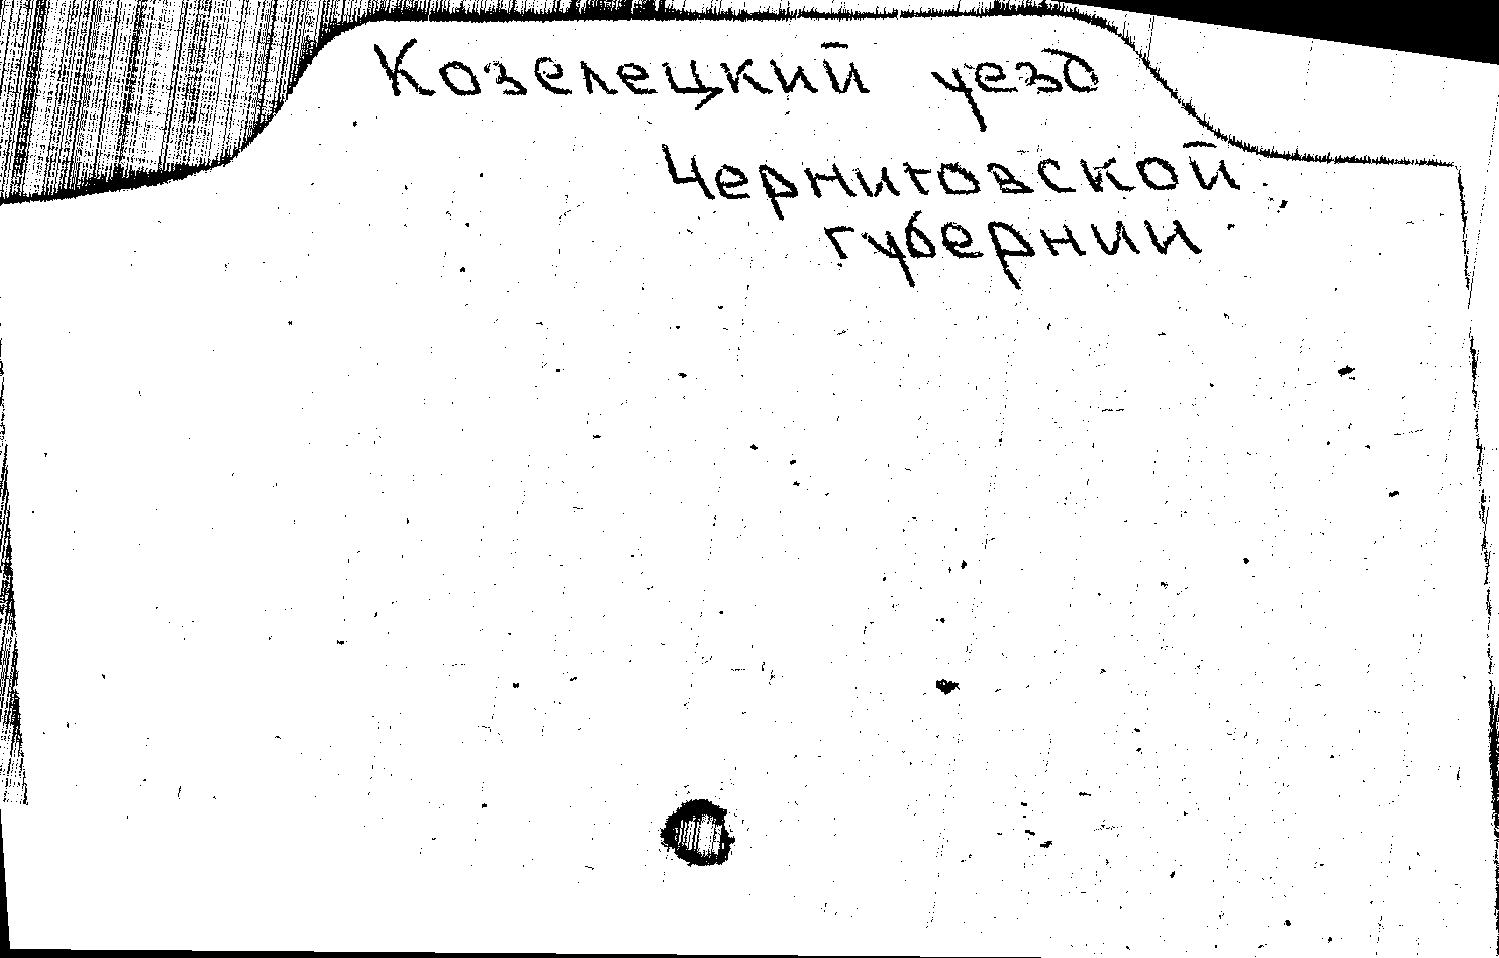 Козелецкий уезд
Черниговской
губернии